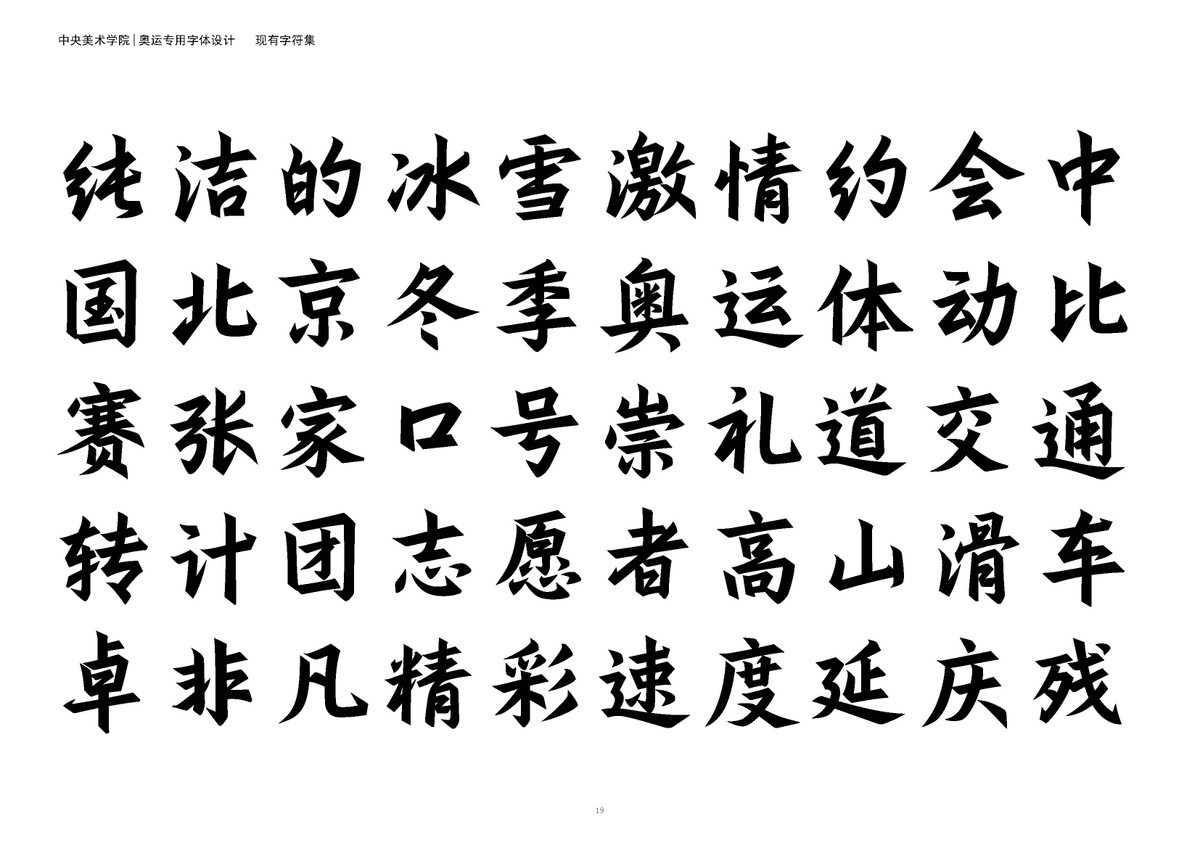 中央美术学院 | 奥运专用字体设计 现有字符集
纯洁的冰雪激情约会中
国北京冬季奥运体动比
赛张家口号崇礼道交通
转计团志愿者高山滑车
卓非凡精彩速度延庆残
19